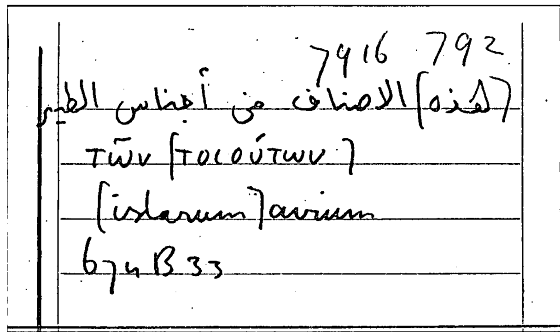 7916 792
[هذه] الاصناف من أجناس الطير
τῶν [τοιούτων]
[istarum] avium
674 B 33